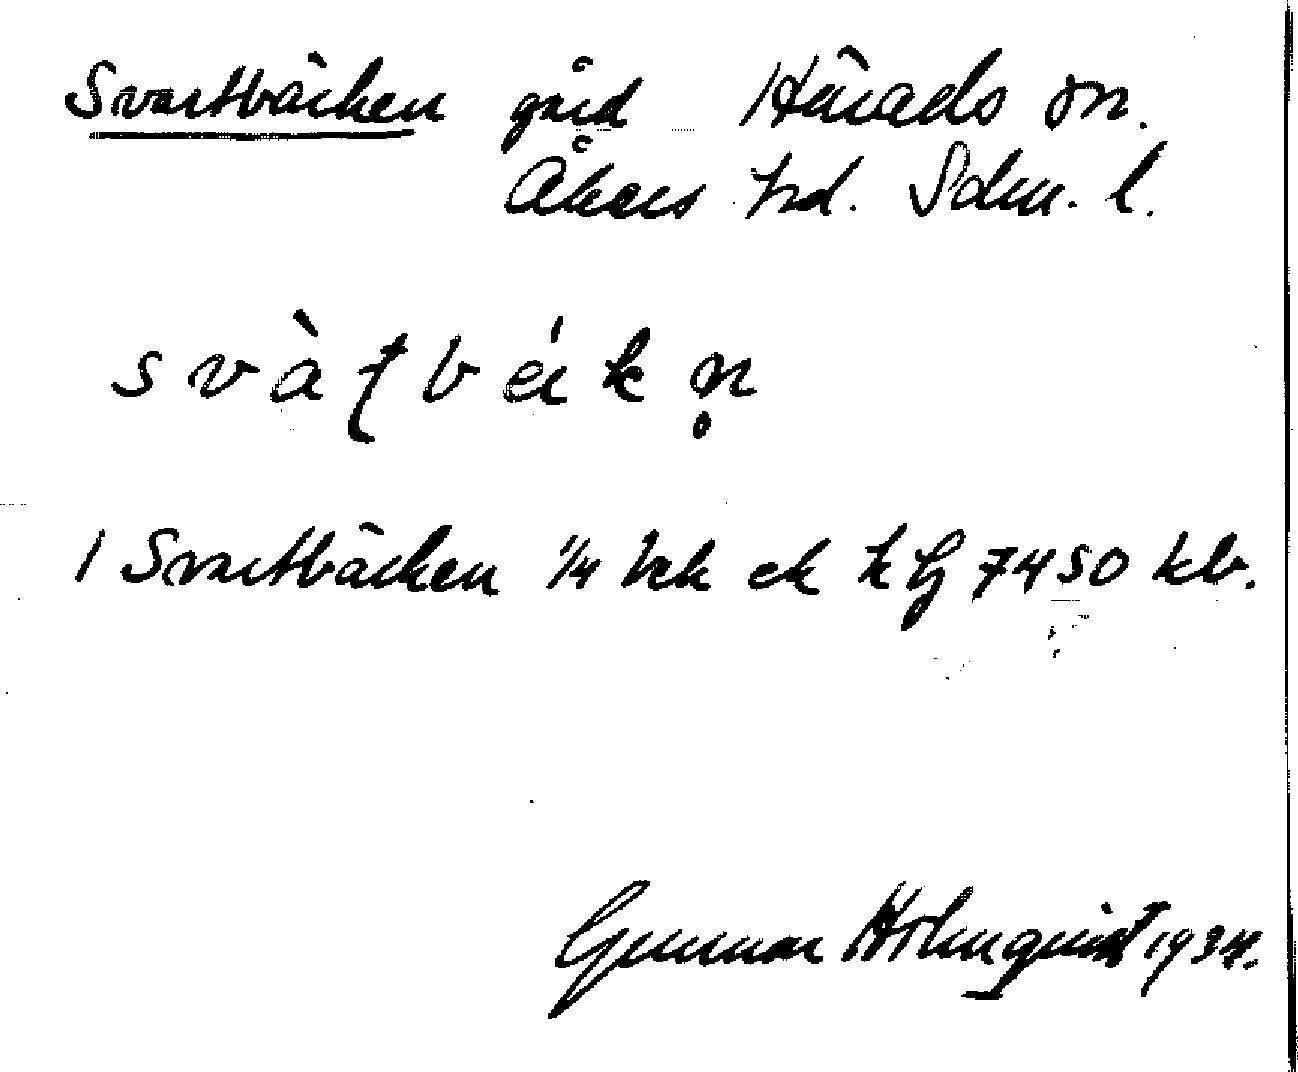 Svartbäcken gård Härads sn.
Åkers hd. Sdm. l.
svàʈbák n̥
1 Svartbäcken 1/4 kb.
Gunnar Holmquist 1934.